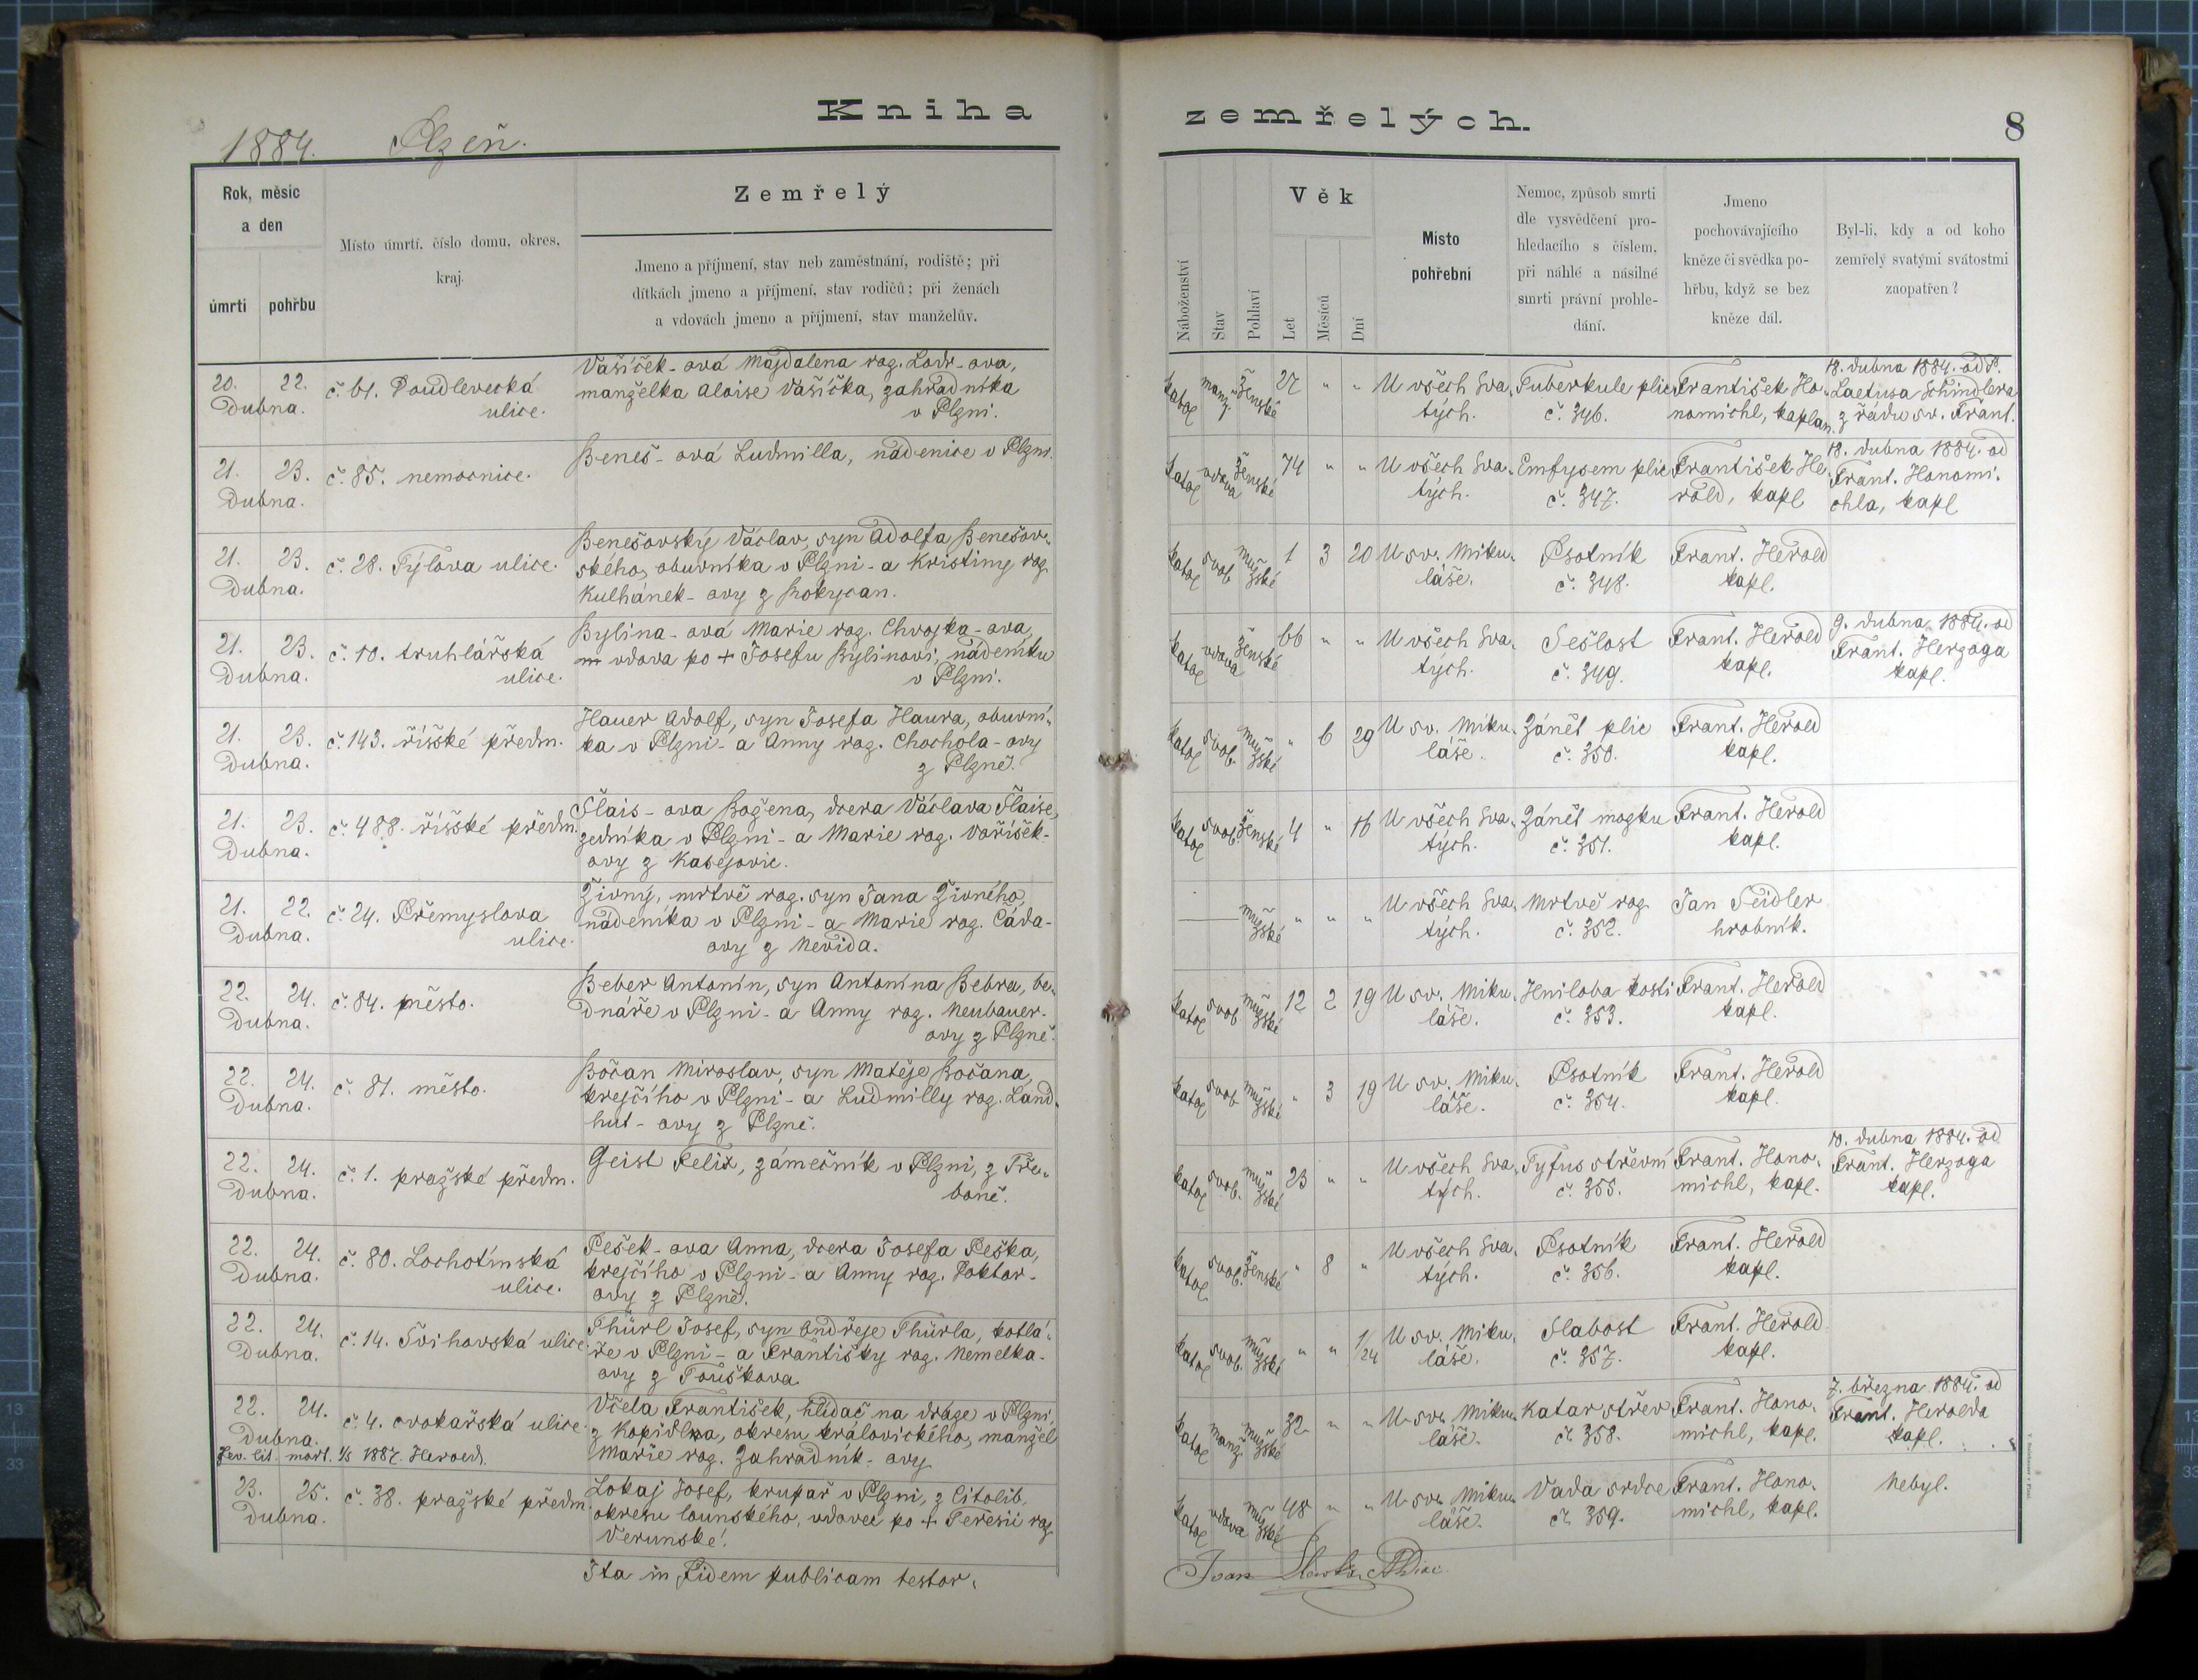 Kniha
zemřelých.
8
1884. Plzeň.
Rok, měsíc
a den
úmrtí
pohřbu
Místo úmrtí, číslo domu, okres,
kraj.
Zemřelý
Jmeno a příjmení, stav neb zaměstnání, rodiště; při
dítkách jmeno a příjmení, stav rodičů; při ženách
a vdovách jmeno a příjmení, stav manželův.
Náboženství
Stav
Pohlaví
Věk
Let
Měsíců
Dní
Místo
pohřební
Nemoc, způsob smrti
dle vysvědčení pro-
hledacího s číslem,
při náhlé a násilné
smrti právní prohle-
dání.
Jmeno
pochovávajícího
kněze či svědka po-
hřbu, když se bez
kněze dál.
Byl-li, kdy a od koho
zemřelý svatými svátostmi
zaopatřen?
20. 22.
Dubna.
č. 61. Doudlevecká
ulice.
Vašíček-ová Majdalena roz. Lodr-ova,
manželka Aloise Vašíčka, zahradníka
v Plzni.
katol manž. ženské 27 " "
U všech Sva-
tých.
Tuberkule plic
č. 346.
František Ho-
nomichl, kaplan.
18. dubna 1884. od P.
Laetusa Schindlera
z řádu sv. Frant.
21. 23.
Dubna.
č. 85. nemocnice.
Beneš-ová Ludmilla, nádenice v Plzni.
katol vdova ženské 74 " "
U všech Sva-
tých.
Emfysem plic
č. 347.
František He-
rold, kapl
18. dubna 1884. od
Frant. Honomi-
chla, kapl
21. 23.
Dubna.
č. 28. Tylova ulice.
Benešovský Václav, syn Adolfa Benešov-
ského, obuvníka v Plzni - a Kristiny roz.
Kulhánek-ovy z Rokycan.
katol svob mužské 1 3 20
U sv. Miku-
láše.
Psotník
č. 348.
Frant. Herold
kapl.
21. 23.
Dubna.
č. 10. truhlářská
ulice.
Bylina-ová Marie roz. Chvojka-ova,
vdova po + Josefu Bylinovi, nádeníku
v Plzni.
katol vdova ženské 66 " "
U všech Sva-
tých.
Sešlost
č. 349.
Frant. Herold
kapl.
9. dubna 1884. od
Frant. Herzoga
kapl.
21. 23.
Dubna.
č. 143. říšské předm.
Hauer Adolf, syn Josefa Haura, obuvní-
ka v Plzni - a Anny roz. Chochola-ovy
z Plzně.
katol svob. mužské " 6 29
U sv. Miku-
láše.
Zánět plic
č. 350.
Frant. Herold
kapl.
21. 23.
Dubna.
č. 488. říšské předm.
Šlais-ova Božena, dcera Václava Šlaise,
zedníka v Plzni - a Marie roz. Voříšek-
ovy z Kasejovic.
katol svob. ženské 4 " 16
U všech Sva-
tých.
Zánět mozku
č. 351.
Frant. Herold
kapl.
21. 22.
Dubna.
č. 24. Přemyslova
ulice.
Živný, mrtvě roz. syn Jana Živného,
nádeníka v Plzni - a Marie roz. Cáda-
ovy z Nevida.
mužské " " "
U všech Sva-
tých.
Mrtvě roz.
č. 352.
Jan Seidler
hrobník.
22. 24.
Dubna.
č. 84. město.
Beber Antonín, syn Antonína Bebra, be-
dnáře v Plzni - a Anny roz. Neubauer-
ovy z Plzně.
katol svob. mužské 12 2 19
U sv. Miku-
láše.
Hniloba kosti
č. 353.
Frant. Herold
kapl.
22. 24.
Dubna.
č. 81. město.
Bočan Miroslav, syn Matěje Bočana,
krejčího v Plzni - a Ludmilly roz. Land-
hut-ovy z Plzně.
katol svob mužské " 3 19
U sv. Miku-
láše.
Psotník
č. 354.
Frant. Herold
kapl.
22. 24.
Dubna.
č. 1. pražské předm.
Geist Felix, zámečník v Plzni, z Tře-
boně.
katol svob. mužské 23 " "
U všech Sva-
tých.
Tyfus střevní
č. 355.
Frant. Hono-
michl, kapl.
10. dubna 1884. od
Frant. Herzoga
kapl.
22. 24.
Dubna.
č. 80. Lochotínská
ulice.
Pešek-ova Anna, dcera Josefa Peška,
krejčího v Plzni - a Anny roz. Doktor-
ovy z Plzně.
katol svob. ženské " 8 "
U všech Sva-
tých.
Psotník
č. 356.
Frant. Herold
kapl.
22. 24.
Dubna.
č. 14. Švihovská ulice.
Thürl Josef, syn Ondřeje Thürla, kotlá-
ře v Plzni - a Františky roz. Nemelka-
ovy z Touškova.
katol svob. mužské " " 1/24
U sv. Miku-
láše.
Slabost
č. 357.
Frant. Herold
kapl.
22. 24.
Dubna.
č. 4. cvokařská ulice.
Včela František, hlídač na dráze v Plzni,
z Kopidlna, okresu královického, manžel
Marie roz. Zahradník-ovy
katol manž. mužské 32 " "
U sv. Miku-
láše.
Katar střev
č. 358.
Frant. Hono-
michl, kapl.
7. března 1884. od
Frant. Herolda
kapl.
mort. 1/5 1887. Herold.
23. 25.
Dubna.
č. 38. pražské předm.
Lokaj Josef, krupař v Plzni, z Citolib,
okresu lounského, vdovec po + Teresii roz
Verunské.
katol vdova mužské 48 " "
U sv. Miku-
láše.
Vada srdce
č. 359.
Frant. Hono-
michl, kapl.
Nebyl.
Ita in fidem publicam testor.